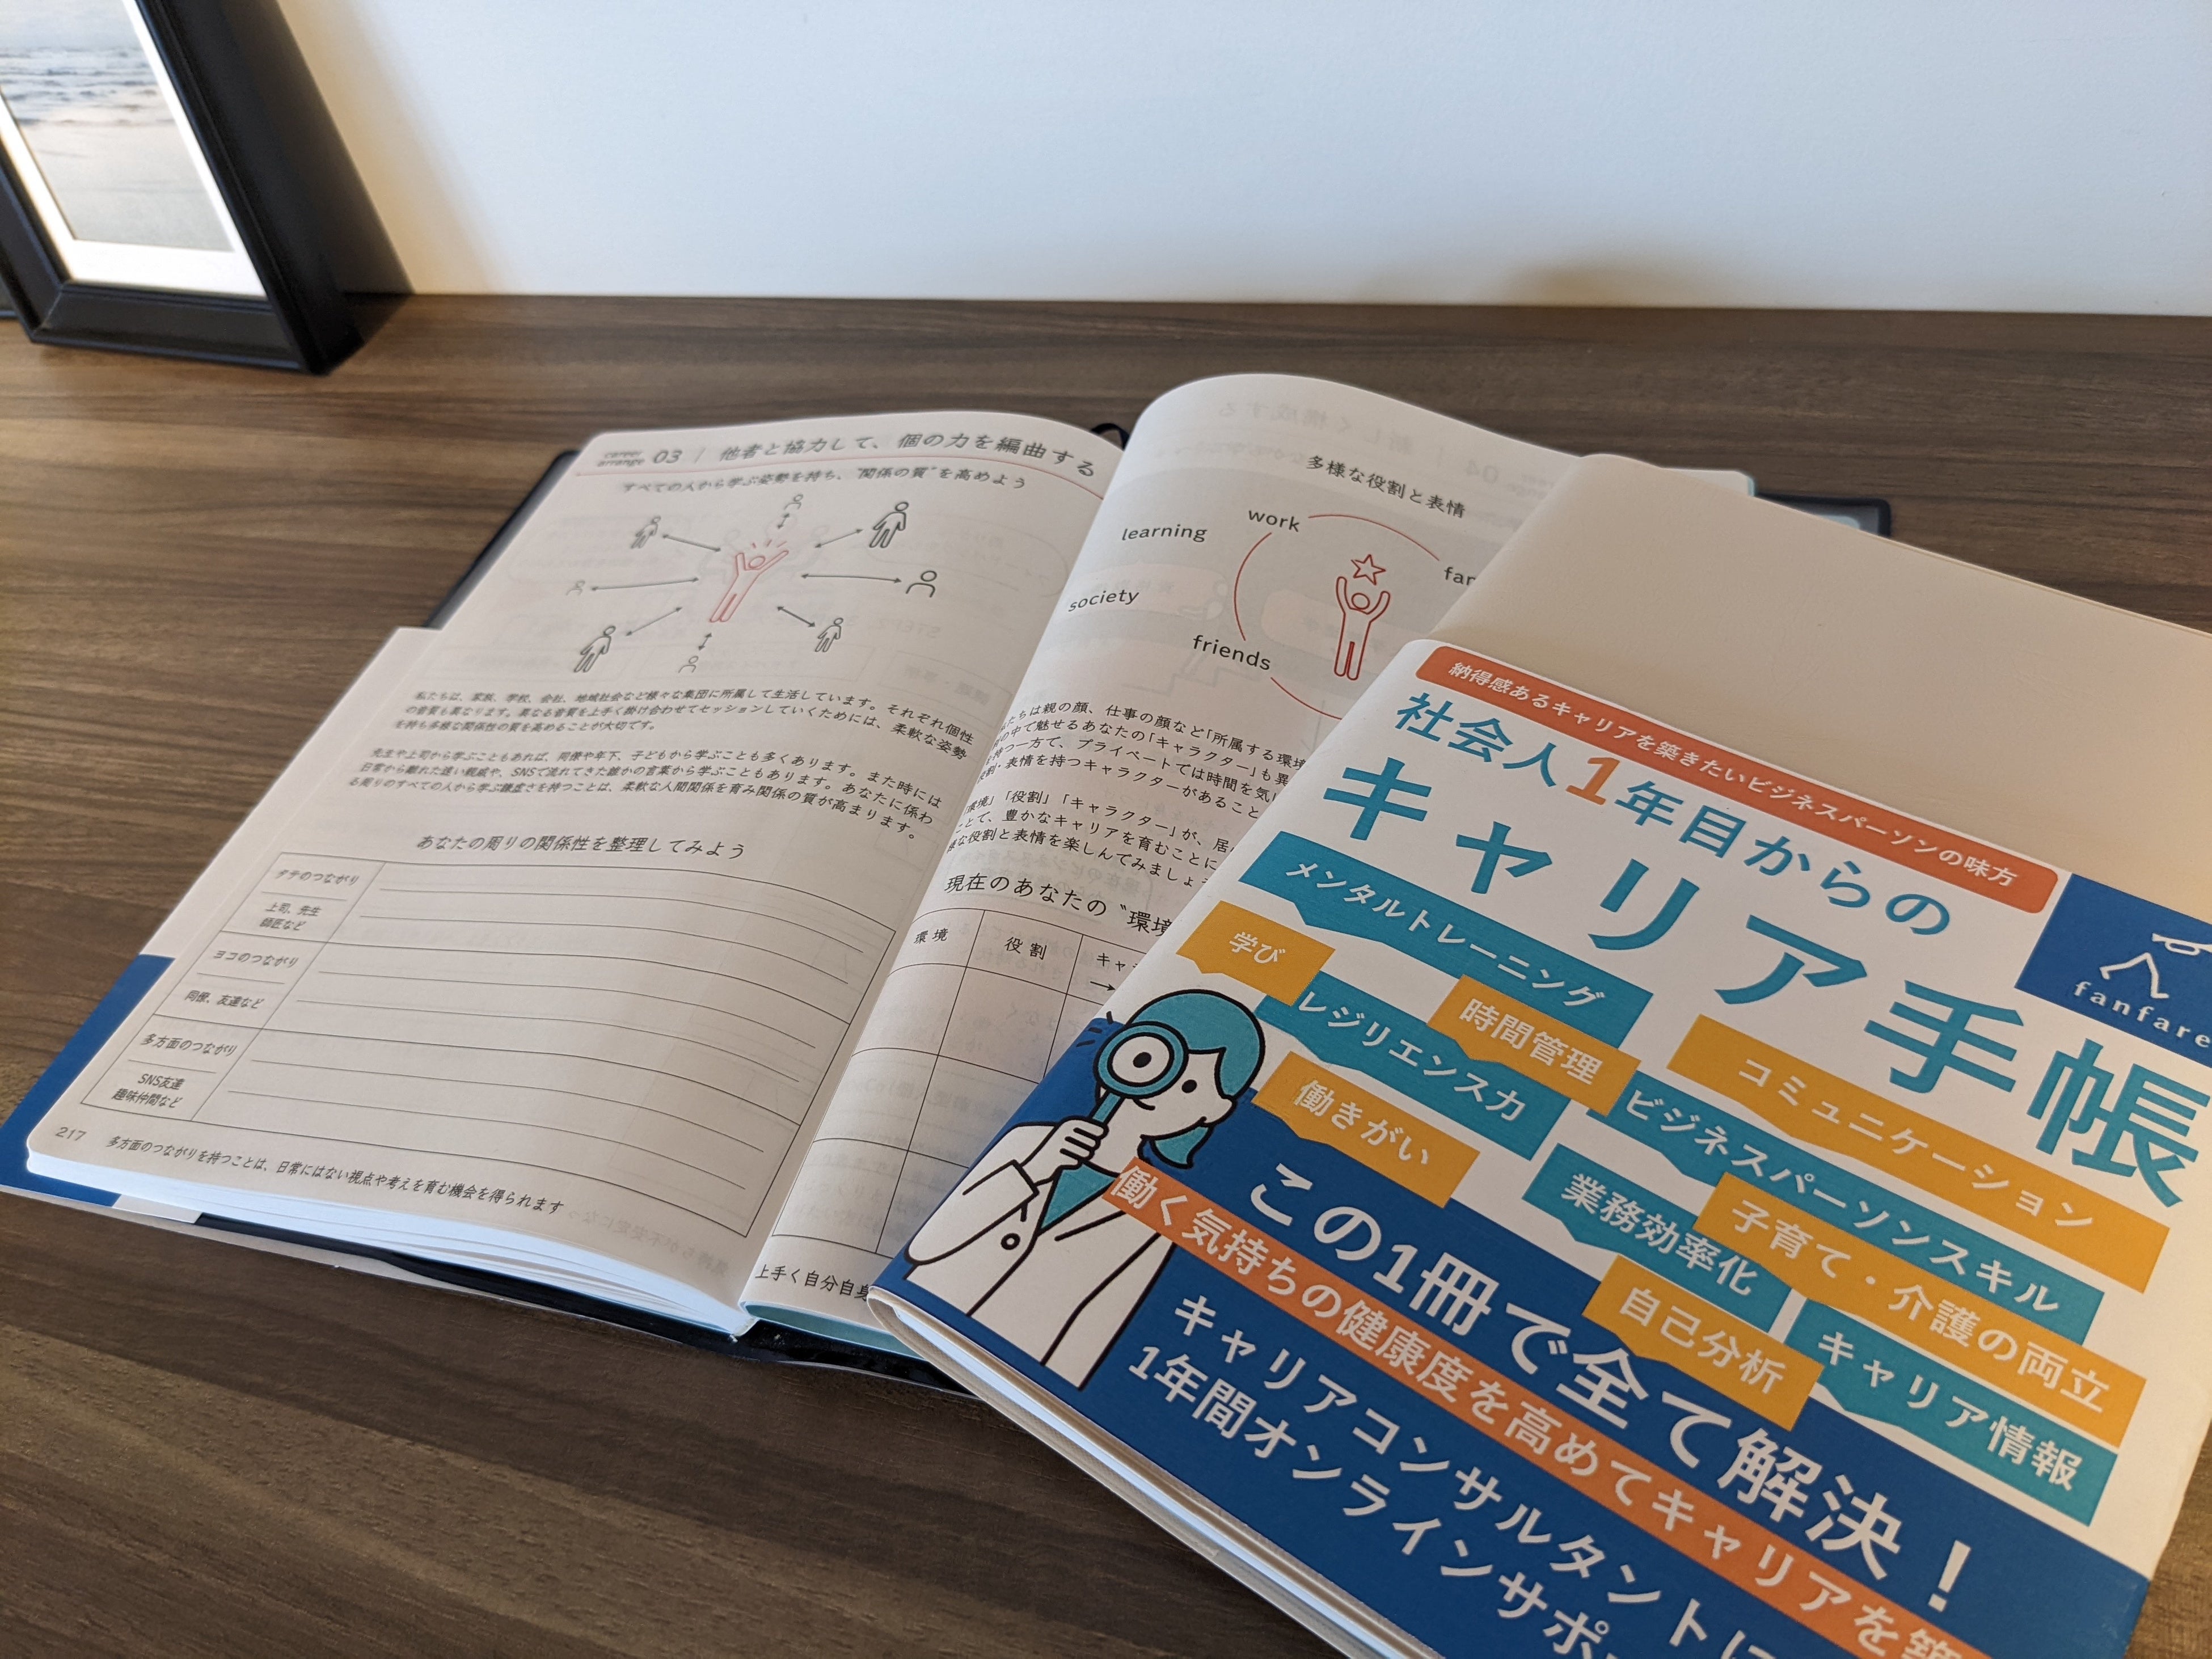 career
arrange 03 | 他者と協力して、個の力を編曲する
すべての人から学ぶ姿勢を持ち、“関係の質”を高めよう
私たちは、家族、学校、会社、地域社会など様々な集団に所属して生活しています。それぞれ個性
の音質も異なります。異なる音質を上手く掛け合わせてセッションしていくためには、柔軟な姿勢
を持ち多様な関係性の質を高めることが大切です。
先生や上司から学ぶこともあれば、同僚や年下、子どもから学ぶことも多くあります。また時には
日常から離れた遠い親戚や、SNSで流れてきた誰かの言葉から学ぶこともあります。あなたに係わ
る周りのすべての人から学ぶ謙虚さを持つことは、柔軟な人間関係を育み関係の質が高まります。
あなたの周りの関係性を整理してみよう
タテのつながり
上司、先生
師匠など
ヨコのつながり
同僚、友達など
多方面のつながり
SNS友達
趣味仲間など
217 多方面のつながりを持つことは、日常にはない視点や考えを育む機会を得られます
多様な役割と表情
work
learning
society
friends
たちは親の顔、仕事の顔など「所属する環境
の中で魅せるあなたの「キャラクター」も異
持つ一方で、プライベートでは時間を気に
・表情を持つキャラクターがあること
環境」「役割」「キャラクター」が、居
ことで、豊かなキャリアを育むことに
な役割と表情を楽しんでみましょう
現在のあなたの“環境
環境
役割
キャ
→
上手く自分自身
納得感あるキャリアを築きたいビジネスパーソンの味方
社会人1年目からの
キャリア手帳
fanfare
メンタルトレーニング
学び
レジリエンス力
時間管理
コミュニケーション
働きがい
ビジネスパーソンスキル
業務効率化
子育て・介護の両立
自己分析
キャリア情報
この1冊で全て解決！
働く気持ちの健康度を高めてキャリアを築
キャリアコンサルタントに
1年間オンラインサポ